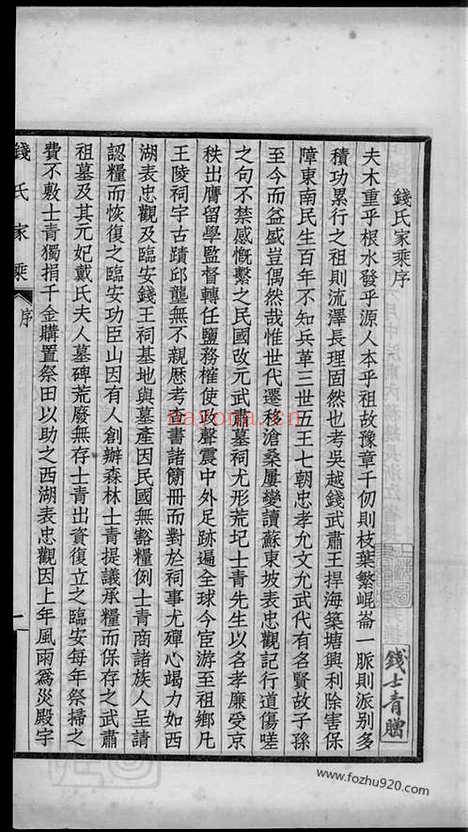 錢氏家乘序
夫木重乎根水發乎源人本乎祖故豫章千仞則枝葉繁崐崙一脈則派別多
積功累行之祖則流澤長理固然也考吳越錢武肅王捍海築塘興利除害保
障東南民生百年不知兵革三世五王七朝忠孝允文允武代有名賢故子孫
至今而益盛豈偶然哉惟世代遷移滄桑屢變讀蘇東坡表忠觀記行道傷嗟
之句不禁感慨繫之民國改元武肅墓祠尤形荒圮士青先生以名孝廉受京
秩出膺留學監督轉任鹽務榷使文聲震中外足跡遍全球今宦游至祖鄉凡
王陵祠宇古蹟邱壟無不親歷考求書諸簡冊而對於祠事尤殫心竭力如西
湖表忠觀及臨安錢王祠基地與墓產因民國無豁糧例士青商諸族人呈請
認糧而恢復之臨安功臣山因有人創辦森林士青提議承糧而保存之武肅
祖墓及其元妃戴氏夫人墓碑荒廢無存士青出資復立之臨安每年祭掃之
費不敷士青獨捐千金購置祭田以助之西湖表忠觀因上年風雨為災殿宇
錢氏家乘
序
一
錢士青贈
nayona.cn
www.fozhu920.com